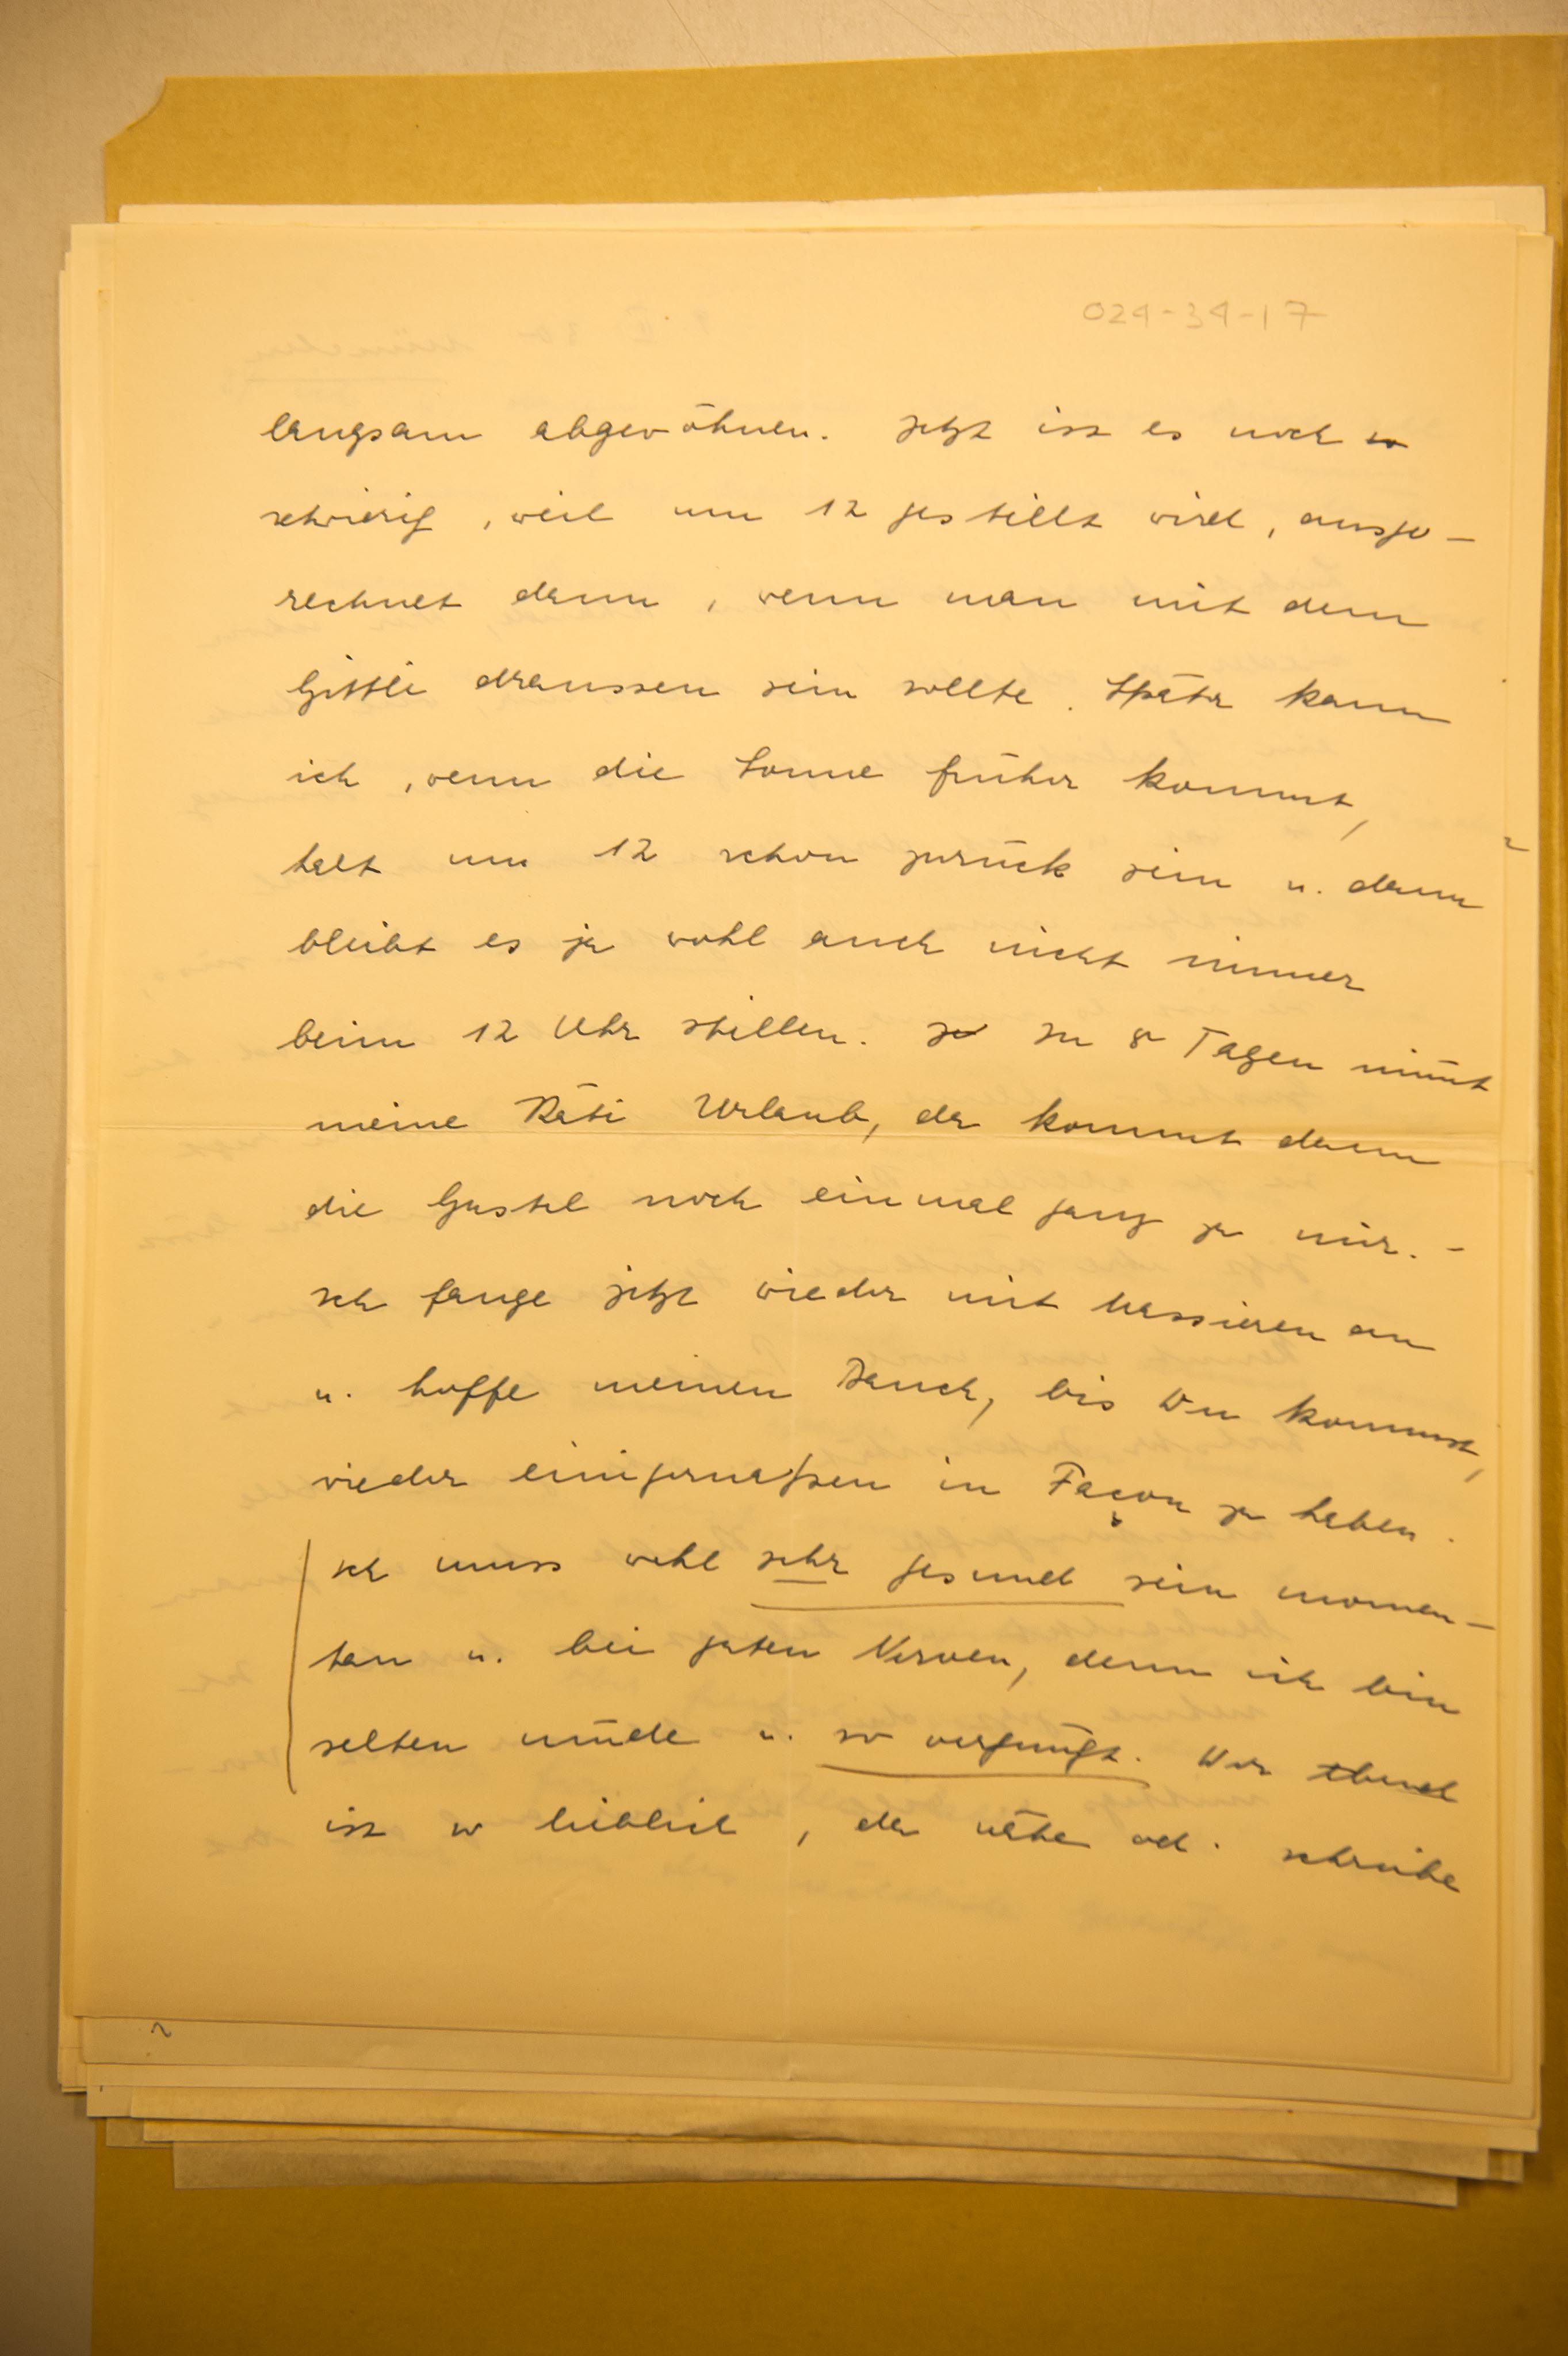 024-34-17
langsam abgewöhnen. Jetzt ist es noch so
schwierig, weil um 12 gestillt wird, ausge-
rechnet dann, wenn man mit dem
Gittli draussen sein sollte. Später kann
ich, wenn die Sonne früher kommt,
halt um 12 schon zurück sein u. dann
bleibt es ja wohl auch nicht immer
beim 12 Uhr stillen. In 8 Tagen nim̄t
meine Käti Urlaub, da kommt dann
die Gustel noch einmal ganz zu mir. -
Ich fange jetzt wieder mit Massieren an
u. hoffe meinen Bauch, bis Du kommst,
wieder einigermaßen in Façon zu haben.
Ich muss wohl sehr gesund sein momen-
tan u. bei guten Nerven, denn ich bin
selten müde u. so vergnügt. Der Abend
ist so lieblich, da nähe od. schreibe